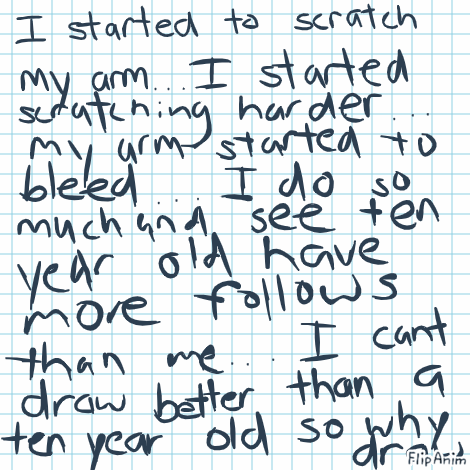 I started to scratch
my arm.... I started
scratching harder....
my arm started to
bleed.... I do so
much and see ten
year old have
more follows
than me.... I cant
draw better than a
ten year old so why
draw
FlipAnim